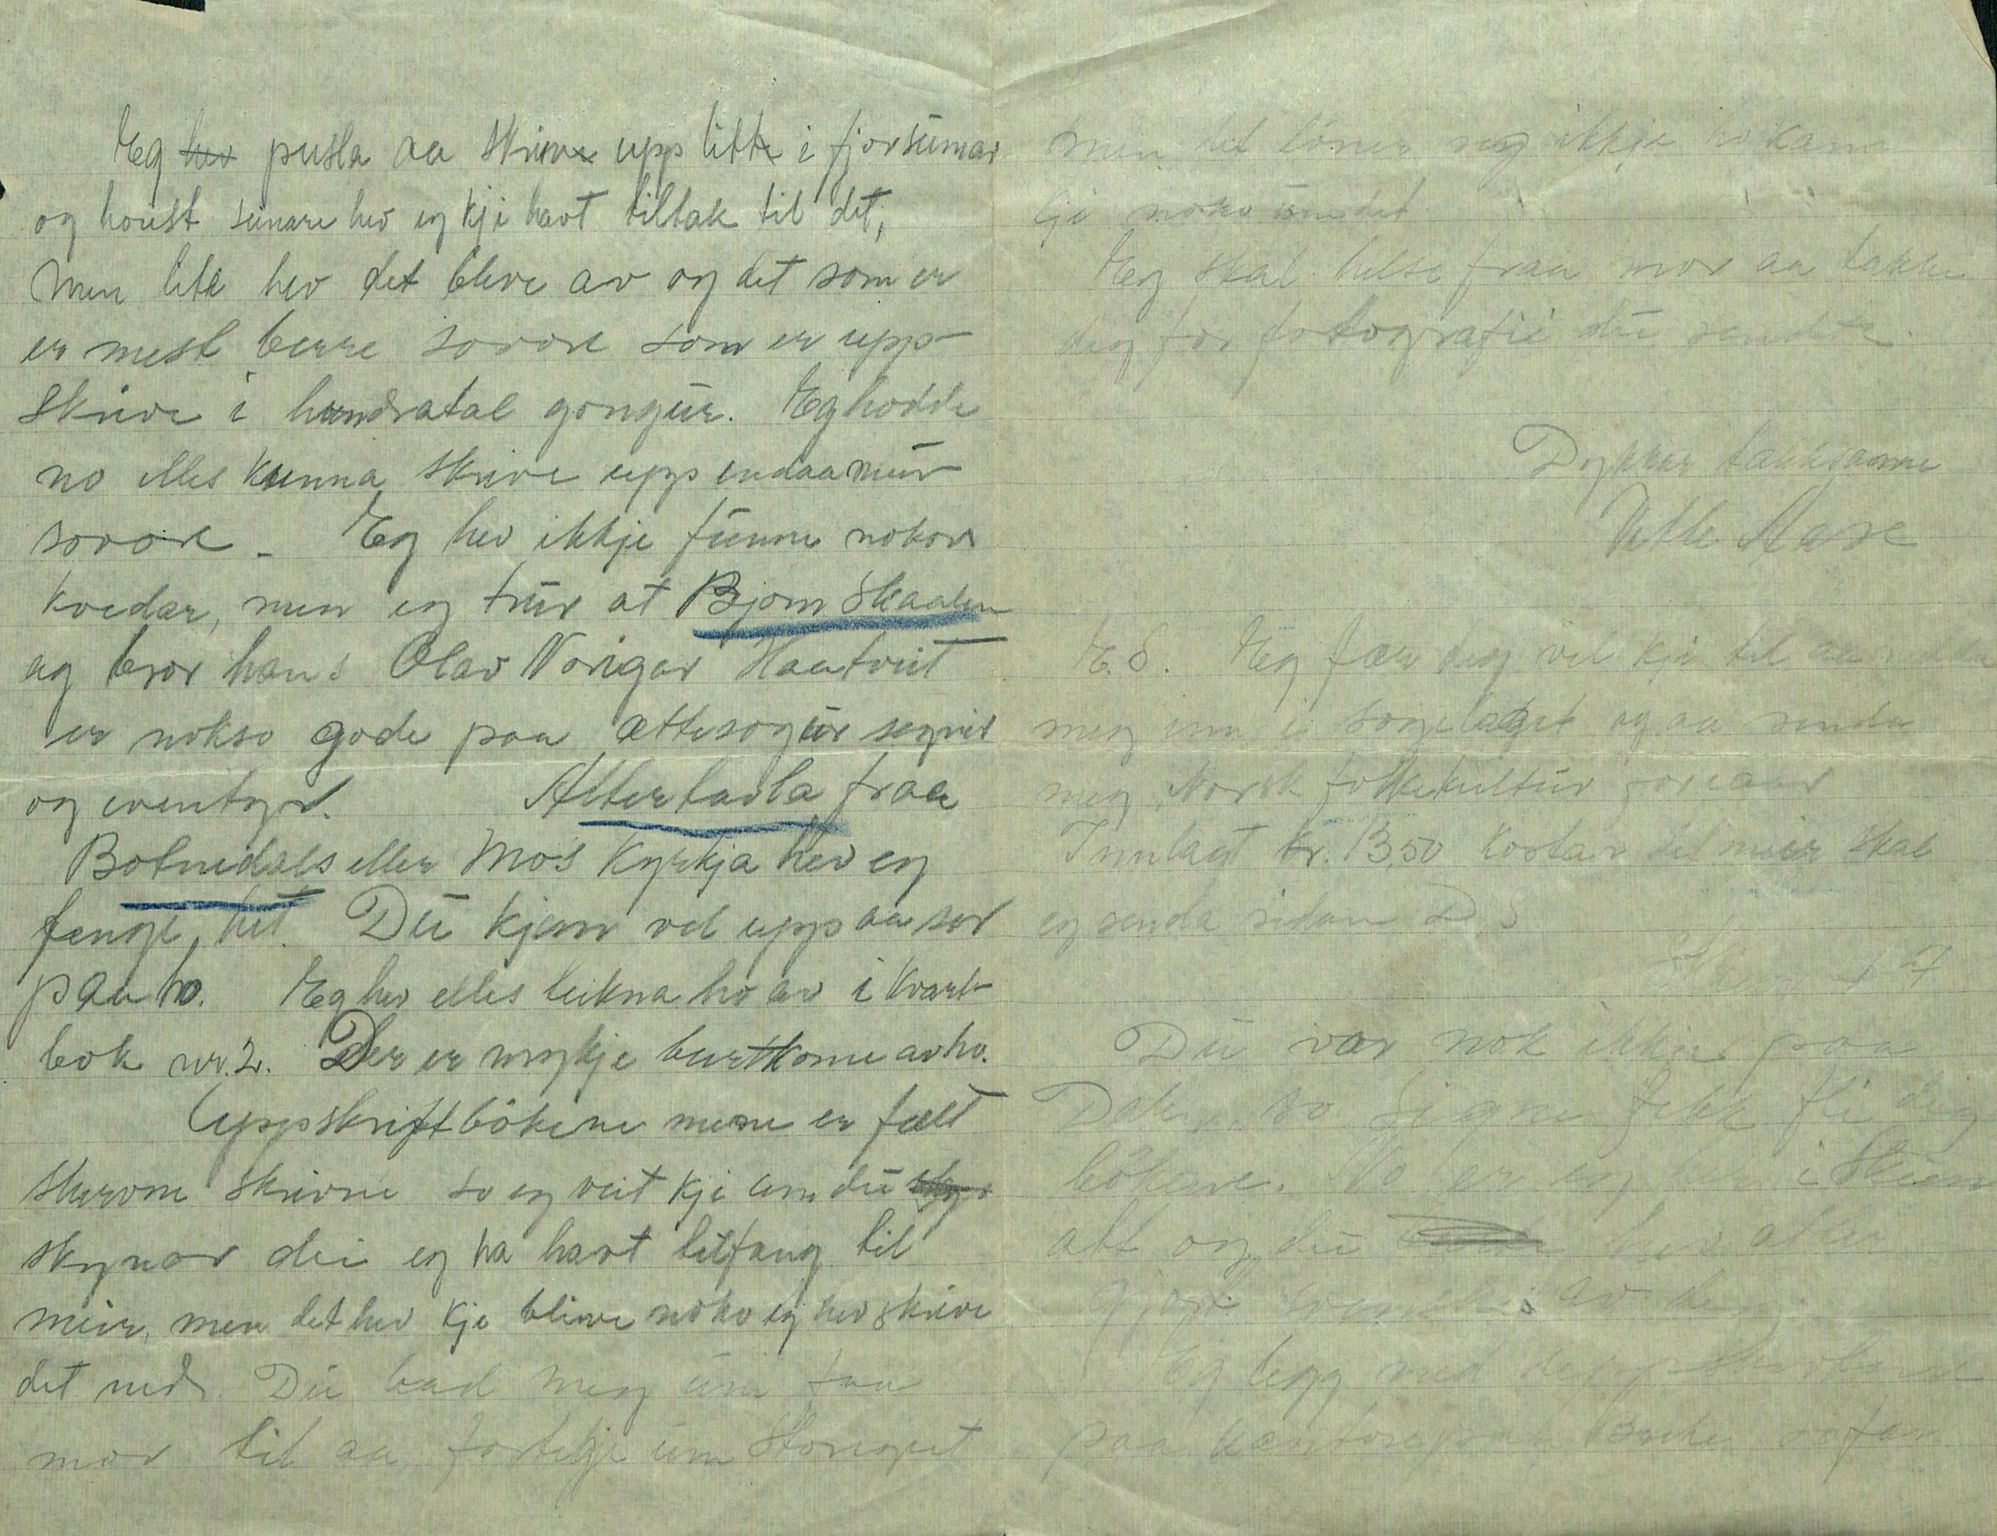 Eg hev pusla aa skrive upp litt i fjorsumar
og houst seinare hev eg kje havt tiltak til det,
Men lite hev det bleve av og det som er
er mest berre sovore som er upp-
skrive i hundratal gongür. Eg hadde
no elles kunna skrive upp endaa meir
sovore - Eg hev ikkje fünne nokon
kvedar, men eg trür at Bjørn Skaalen
og bror hans Olav Norigar Haatveit
er nokso gode paa ættesogür segner
og eventyr. Altertavla fraa
Botnedals eller Mos Kyrkja hev eg
fenge hit. Dü kjem vel upp aa ser
paa ho. Eg hev elles teikna ho av i kvart-
bok nr. 2. Der er mykje burtkome av ho.
Uppskriftbökene mine er fælt
skrovne so eg veit kje um dü
skynar dei eg ha havt tilfang til
meir, men det hev kje blive noko eg hev skrive
det ned. Dü bad meg üm faa
mor til aa fortelje üm Storegut
men det löner seg ikkje ho kann
kje noko üm det
Eg skal helse fraa mor aa takke
deg for fotografie dü sendte.
Dykkar takksame
Vetle Aase
E.S. Eg fær deg vel kje til aa melde
meg inn i sogelaget og aa senda
meg Norsk folkekultür
Innlagt kr. 13,50 Kostar det meir skal
eg senda sidan D S
Skien 7
Dü var nok ikkje paa
Dalen so Signe fekk fli deg
bökene. No er eg her i Skien
att og dü hev
av dei.
Eg legg ved
paa